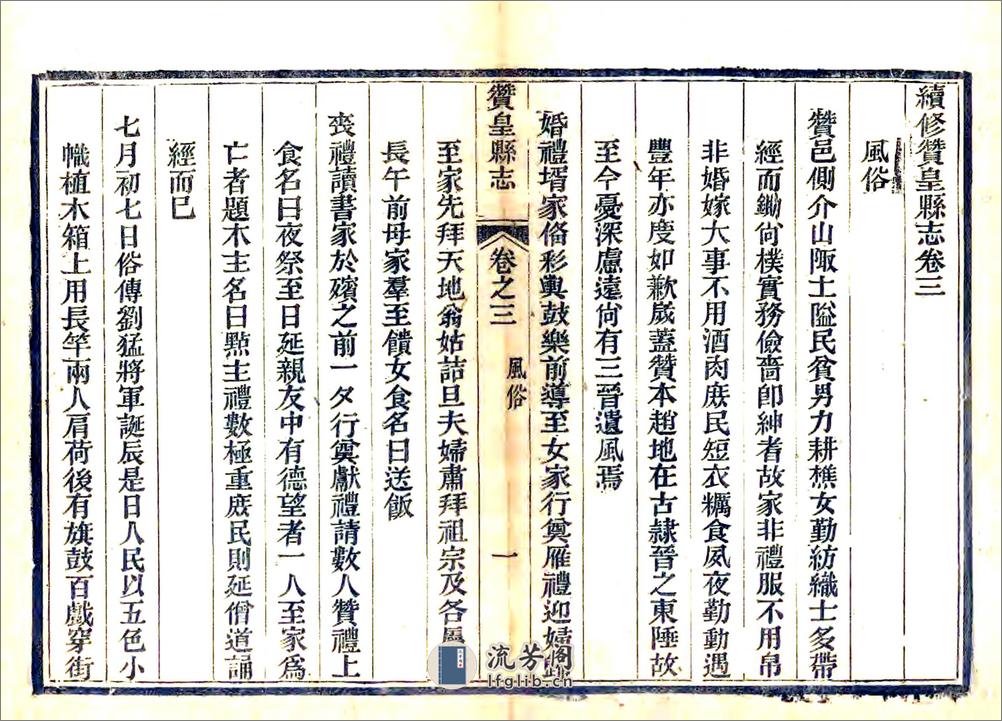 續修贊皇縣志卷三
風俗
贊邑側介山陬土隘民貧男力耕樵女勤紡織士多帶
經而鋤尙樸實務儉嗇卽紳耆故家非禮服不用帛
非婚嫁大事不用酒肉庶民短衣糲食夙夜勤動遇
豐年亦度如歉歲蓋贊本趙地在古隸晉之東陲故
至今憂深慮遠尙有三晉遺風焉
婚禮壻家俻彩輿鼓樂前導至女家行奠雁禮迎婦
贊皇縣志
卷之三
風俗
一
至家先拜天地翁姑詰旦夫婦肅拜祖宗及各
長午前母家羣至饋女食名曰送飯
喪禮讀書家於殯之前一夕行奠獻禮請數人贊禮上
食名曰夜祭至日延親友中有德望者一人至家爲
亡者題木主名曰㸃主禮數極重庶民則延僧道誦
經而已
七月初七日俗傳劉猛將軍誕辰是日人民以五色小
幟植木箱上用長竿兩人肩荷後有旗鼓百戲穿街
流芳阁
lfglib.cn